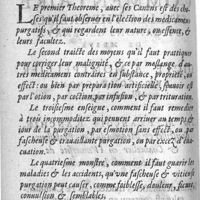 LE premier Theoreme, auec ses Canons est des cho-
ses qu'il faut obseruer en l'election des medicamens
purgatifs, & qui regardent leur nature, ou essence, &
leurs facultez.
Le second traicte des moyens qu'il faut pratiquer
pour corriger leur malignité, & ce par meslange d'au-
tres medicamens contraires en substance, proprieté, ou
effect: ou bien par preparation artificielle, suiuant art,
par lotion, par coction, par infusion, par trituration.
Le troisiesme enseigne, comment il faut remedier
à trois incommoditez qui peuuent arriuer au temps
de la purgation, par esmotion sans effect, ou par
fascheuse & trauaillante purgation, ou par excez d'éua-
cuation.
Le quatriesme monstre, comment il faut guarir les
maladies & les accidents, qu'vne fascheuse & vitieuse
purgation peut causer, comme foiblesse, douleur, fieure,
conuulsion, & semblables.